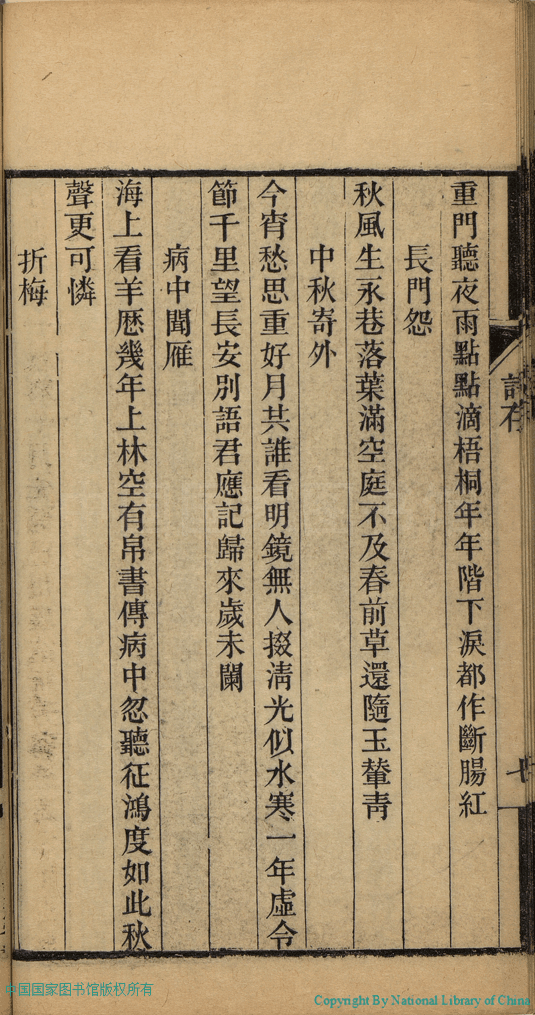 重門聽夜雨點點滴梧桐年年階下淚都作斷腸紅
長門怨
秋風生永巷落葉滿空庭不及春前草還隨玉輦青
中秋寄外
今宵愁思重好月共誰看明鏡無人掇淸光似水寒一年虛令
節千里望長安別語君應記歸來歲未闌
病中聞雁
海上看羊厯幾年上林空有帛書傳病中忽聽征鴻度如此秋
聲更可憐
折梅
詩存
七
中国国家图书馆版权所有
Copyright By National Library of China